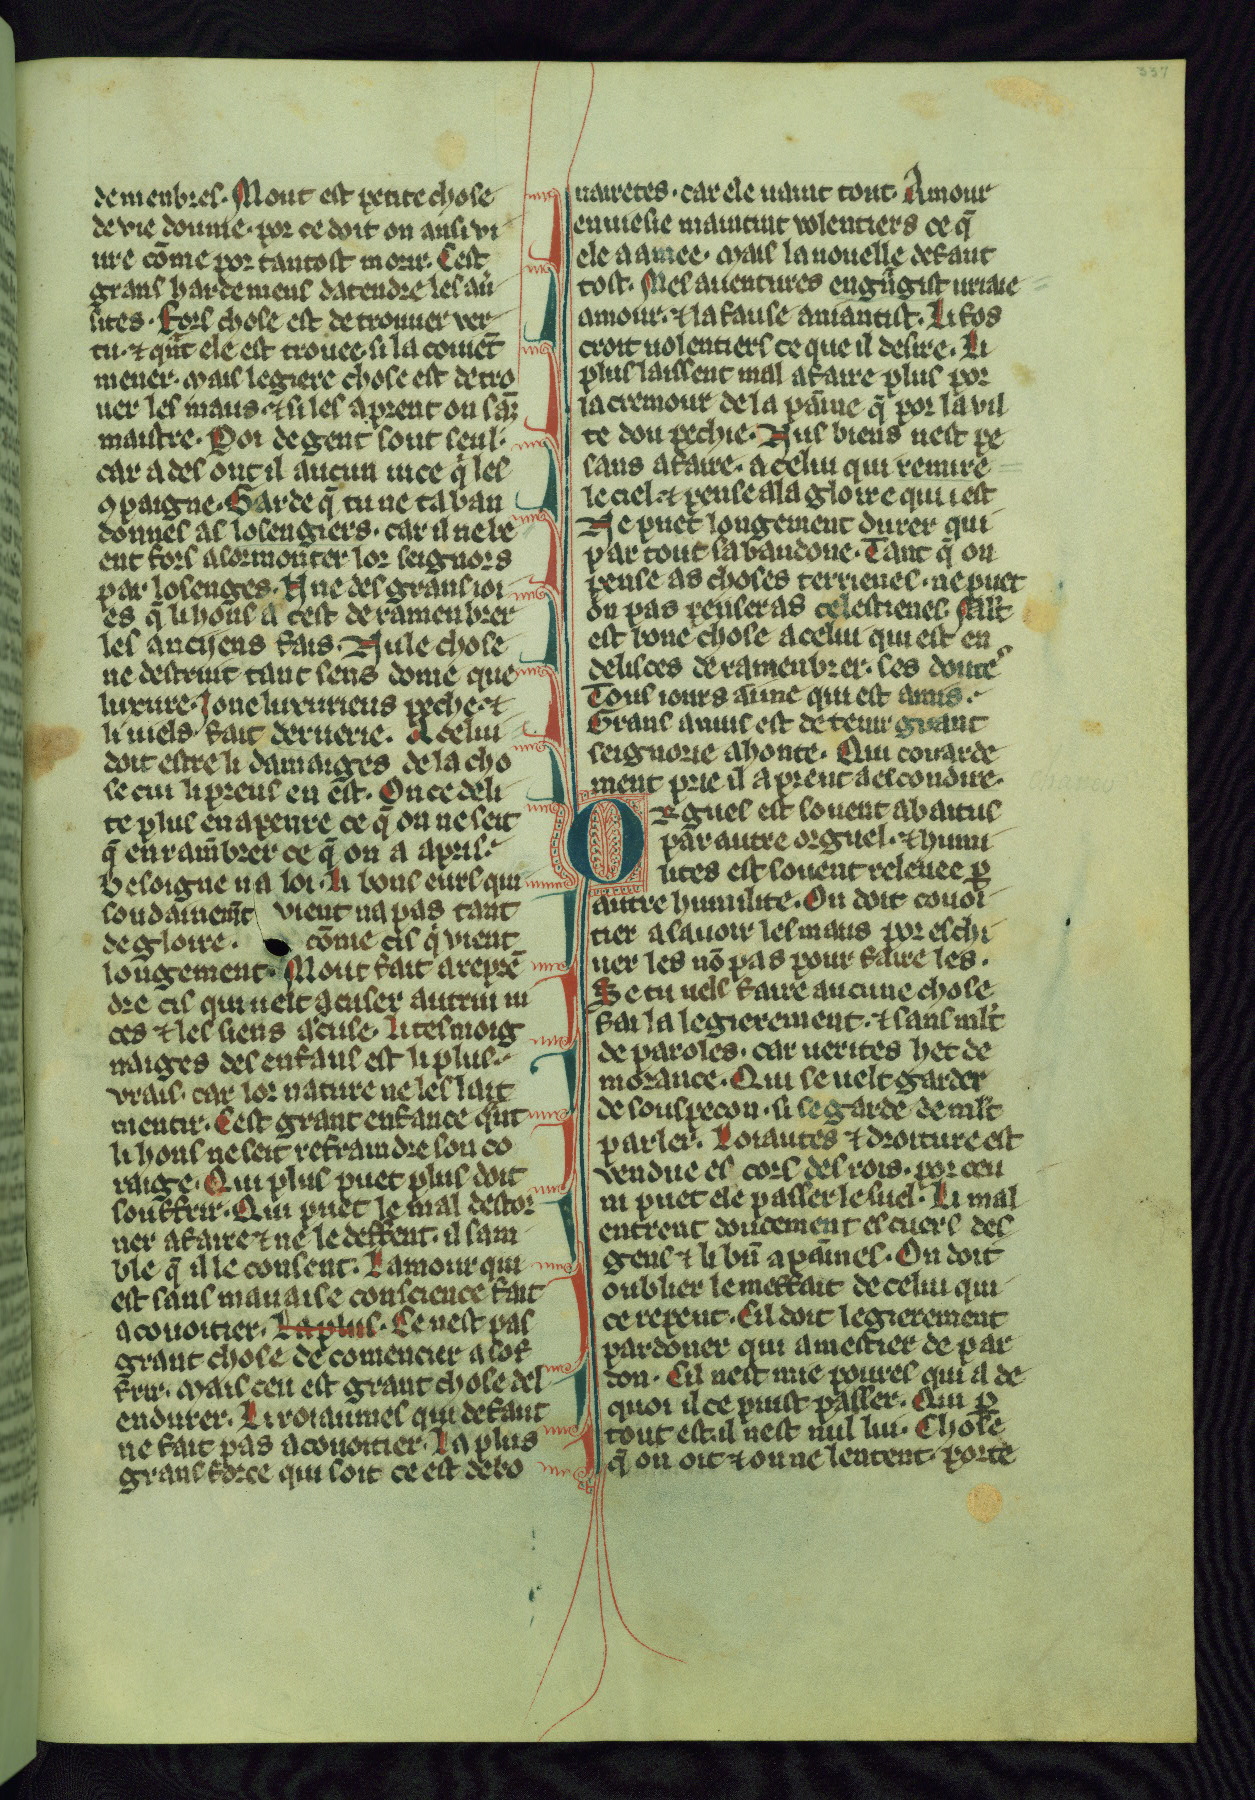 337
de menbres. Mout est petite chose
de vie donnee. por ce doit on ansi vi
ure cōme por tantost morir. Cest
grans hardemens datendre les auſ
sites. Fors chose est de trouuer ver
tu. ⁊ qn̄t ele est trouee si la couiēt
mener. mais legiere chose est de tro
uer les maus. ⁊ si les aprent on sāz
maistre. Poi de gent sont seul.
car ades ont il aucun uice q̄ les
9paigne. Garde q̄ tu ne taban
donnes as losengiers. car il ne be
ent fors a sormonter lor seignors
par losenges. Vne des grans ioi
es q̄ li hons a cest de ramenbrer
les anciiens fais. Nule chose
ne destruit tant sens dome que
luxure. Ione luxuriens peche. ⁊
li uiels fait deruerie. A celui
doit estre li damaiges de la cho
se cui li preus en est. On ce deli
te plus en apenre ce q̄ on ne seit
q̄ en rāmbrer ce q̄ on a apris.
besoigne na loi. Li bons eurs qui
soudainemēt vient na pas tant
de gloire. cōme cis q̄ vient
longement. Mout fait a reprē
dre cis qui uelt acuser autrui ui
ces ⁊ les siens ascuse. Li tesmoig
naiges des enfans est li plus
vrais. car lor nature ne les lait
mentir. Cest grant enfance qn̄t
li hons ne seit refraindre son co
raige. Qui plus puet plus doit
souffrir. Qui puet le mal destor
ner a faire ⁊ ne le deffent. il sam
ble q̄ il le consent. Lamour qui
est sans mauaise conscience fait
a couoitier. La plus. Ce nest pas
grant chose de comencier a sof
frir. mais ceu est grant chose del
endurer. Li roiaumes qui defaut
ne fait pas a couoitier. La plus
grans force qui soit ce est de bo
nairetes. car ele uaint tout. Amour
enuiesie maintint volentiers ce q̄
ele a amee. mais la nouelle defaut
tost. Mes auentures engn̄gist uriaie
amour. ⁊ la fause aniantist. Li fos
croit uolentiers ce que il desire. Li
plus laissent mal a faire plus por
la cremour de la pāine q̄ por la vil
te dou pechie. Nus biens nest pe
sans a faire. a celui qui remire
le ciel. ⁊ pense a la gloire qui i est
Ne puet longement durer qui
par tout sabandone. Tant q̄ on
pense as choses terrienes. ne puet
on pas penser as celestienes. Mlt
est bone chose a celui qui est en
delisces de ramenbrer. ses doutes
Tous iours aīme qui est amis.
Grans anuis est de tenir grant
seignorie a honte. Qui couarde
ment prie il aprent a escondire.
Orguels est souent abaitus
par autre orguel. ⁊ humi
lites est souent releuee p̱
autre humilite. On doit couoi
tier a sauoir les maus por eschi
uer les nō pas pour faire les.
Se tu uels faire aucune chose
fai la legierement. ⁊ sans mlt
de paroles. car uerites het de
morance. Qui se uelt garder
de souspecon. si se garde de mlt
parler. Loiautes ⁊ droiture est
vendue es cors des rois. por ceu
ni puet ele passer le suel. Li mal
entrent doucement es cuers des
gens ⁊ li bn̄ a pāines. On doit
oublier le meffait de celui qui
ce repent. Cil doit legierement
pardoner qui a mestier de par
don. Cil nest mie poures qui a de
quoi il ce puist passer. Qui p̱
tout est. il nest nul lui. Chose
q̄ on oit ⁊ on ne lentent. porte